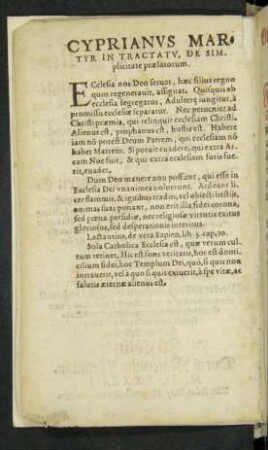 CYPRIANVS MAR-
TYR IN TRACTATV, DE SIM-
plicitate prælatorum.
ECclesia nos Deo seruat, hæc filios regno
quos regenerauit, assignat. Quisquis ab
ecclesia segregatus, Adulteræ iungitur, à
promissis ecclesiæ separatur. Nec pertinet ad
Christi præmia, qui relinquit ecclesiam Christi,
Alienus est, prophanus est, hostis est. Habere
iam nõ potest Deum Patrem, qui ecclesiam nõ
habet Matrem. Si potuit euadere, qui extra Ar-
cam Noe fuit, & qui extra ecclesiam foris fue-
rit, euadet.
Dum Deo manere non possunt, qui esse in
Ecclesia Dei vnanimes noluerunt. Ardeant li-
cet flammis, & ignibus traditi, vel obiecti bestijs,
animas suas ponant, non erit illa fidei corona,
sed pœna perfidiæ, nec religiosæ virtutis exitus
gloriosus, sed desperationis interitus.
Lactantius, de vera Sapien. lib. 4. cap.
Sola Catholica Ecclesia est, quæ verum cul-
tum retinet, Hic est fons veritatis, hoc est domi-
cilium fidei, hoc Templum Dei, quò, si quis non
intrauerit, vel à quo si quis exiuerit, à spe vitæ, ac
salutis æternæ alienus est.